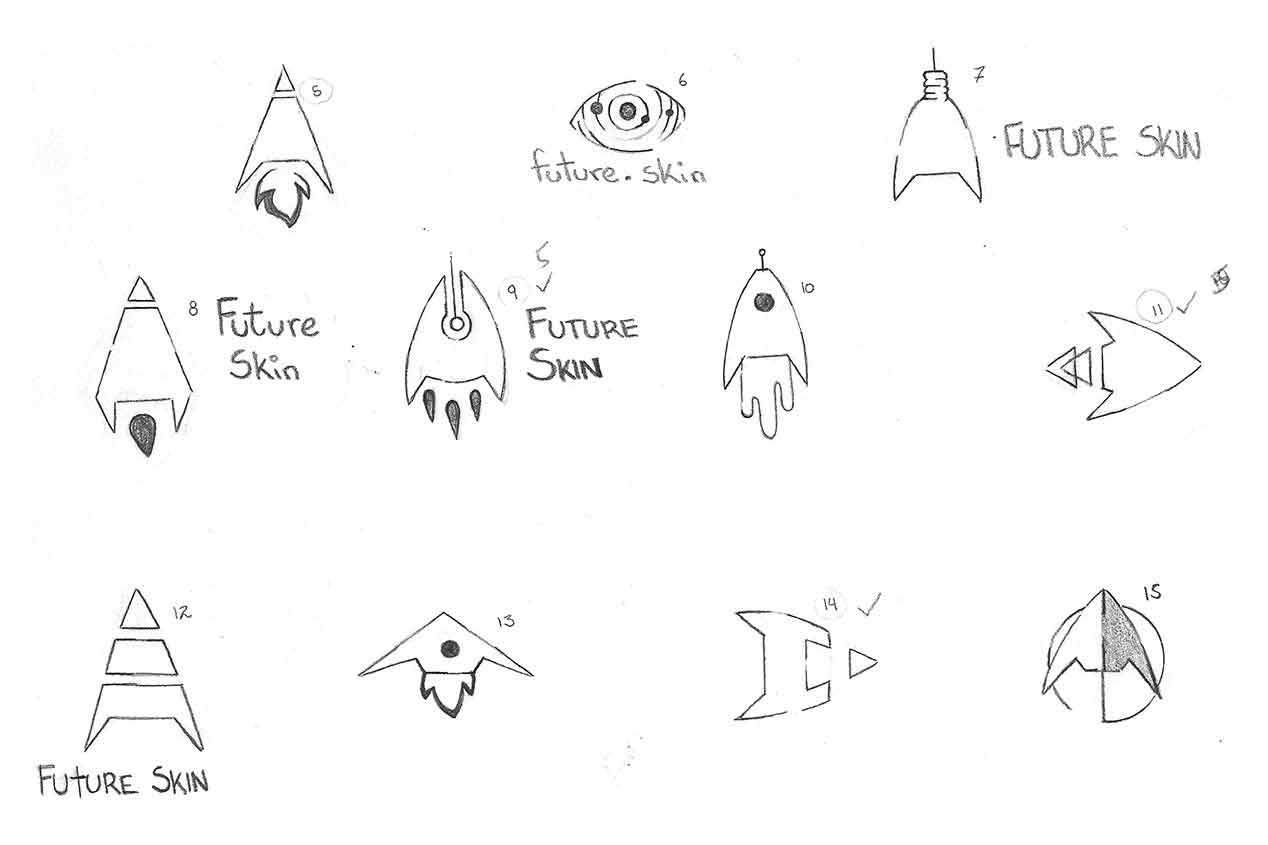 5
6
future.skin
7
FUTURE SKIN
8
Future
Skin
5
9
FUTURE
SKIN
10
11
12
FUTURE SKIN
13
14
15